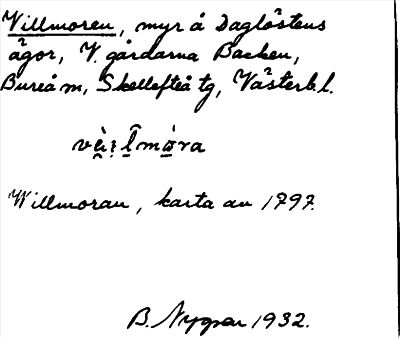 Villmoren, myr å Daglöstens
ägor, V. gårdarna Backen,
Bureå m, Skellefteå tg, Västerb.l.
Willmoran, karta av 1797.
B. 1932.